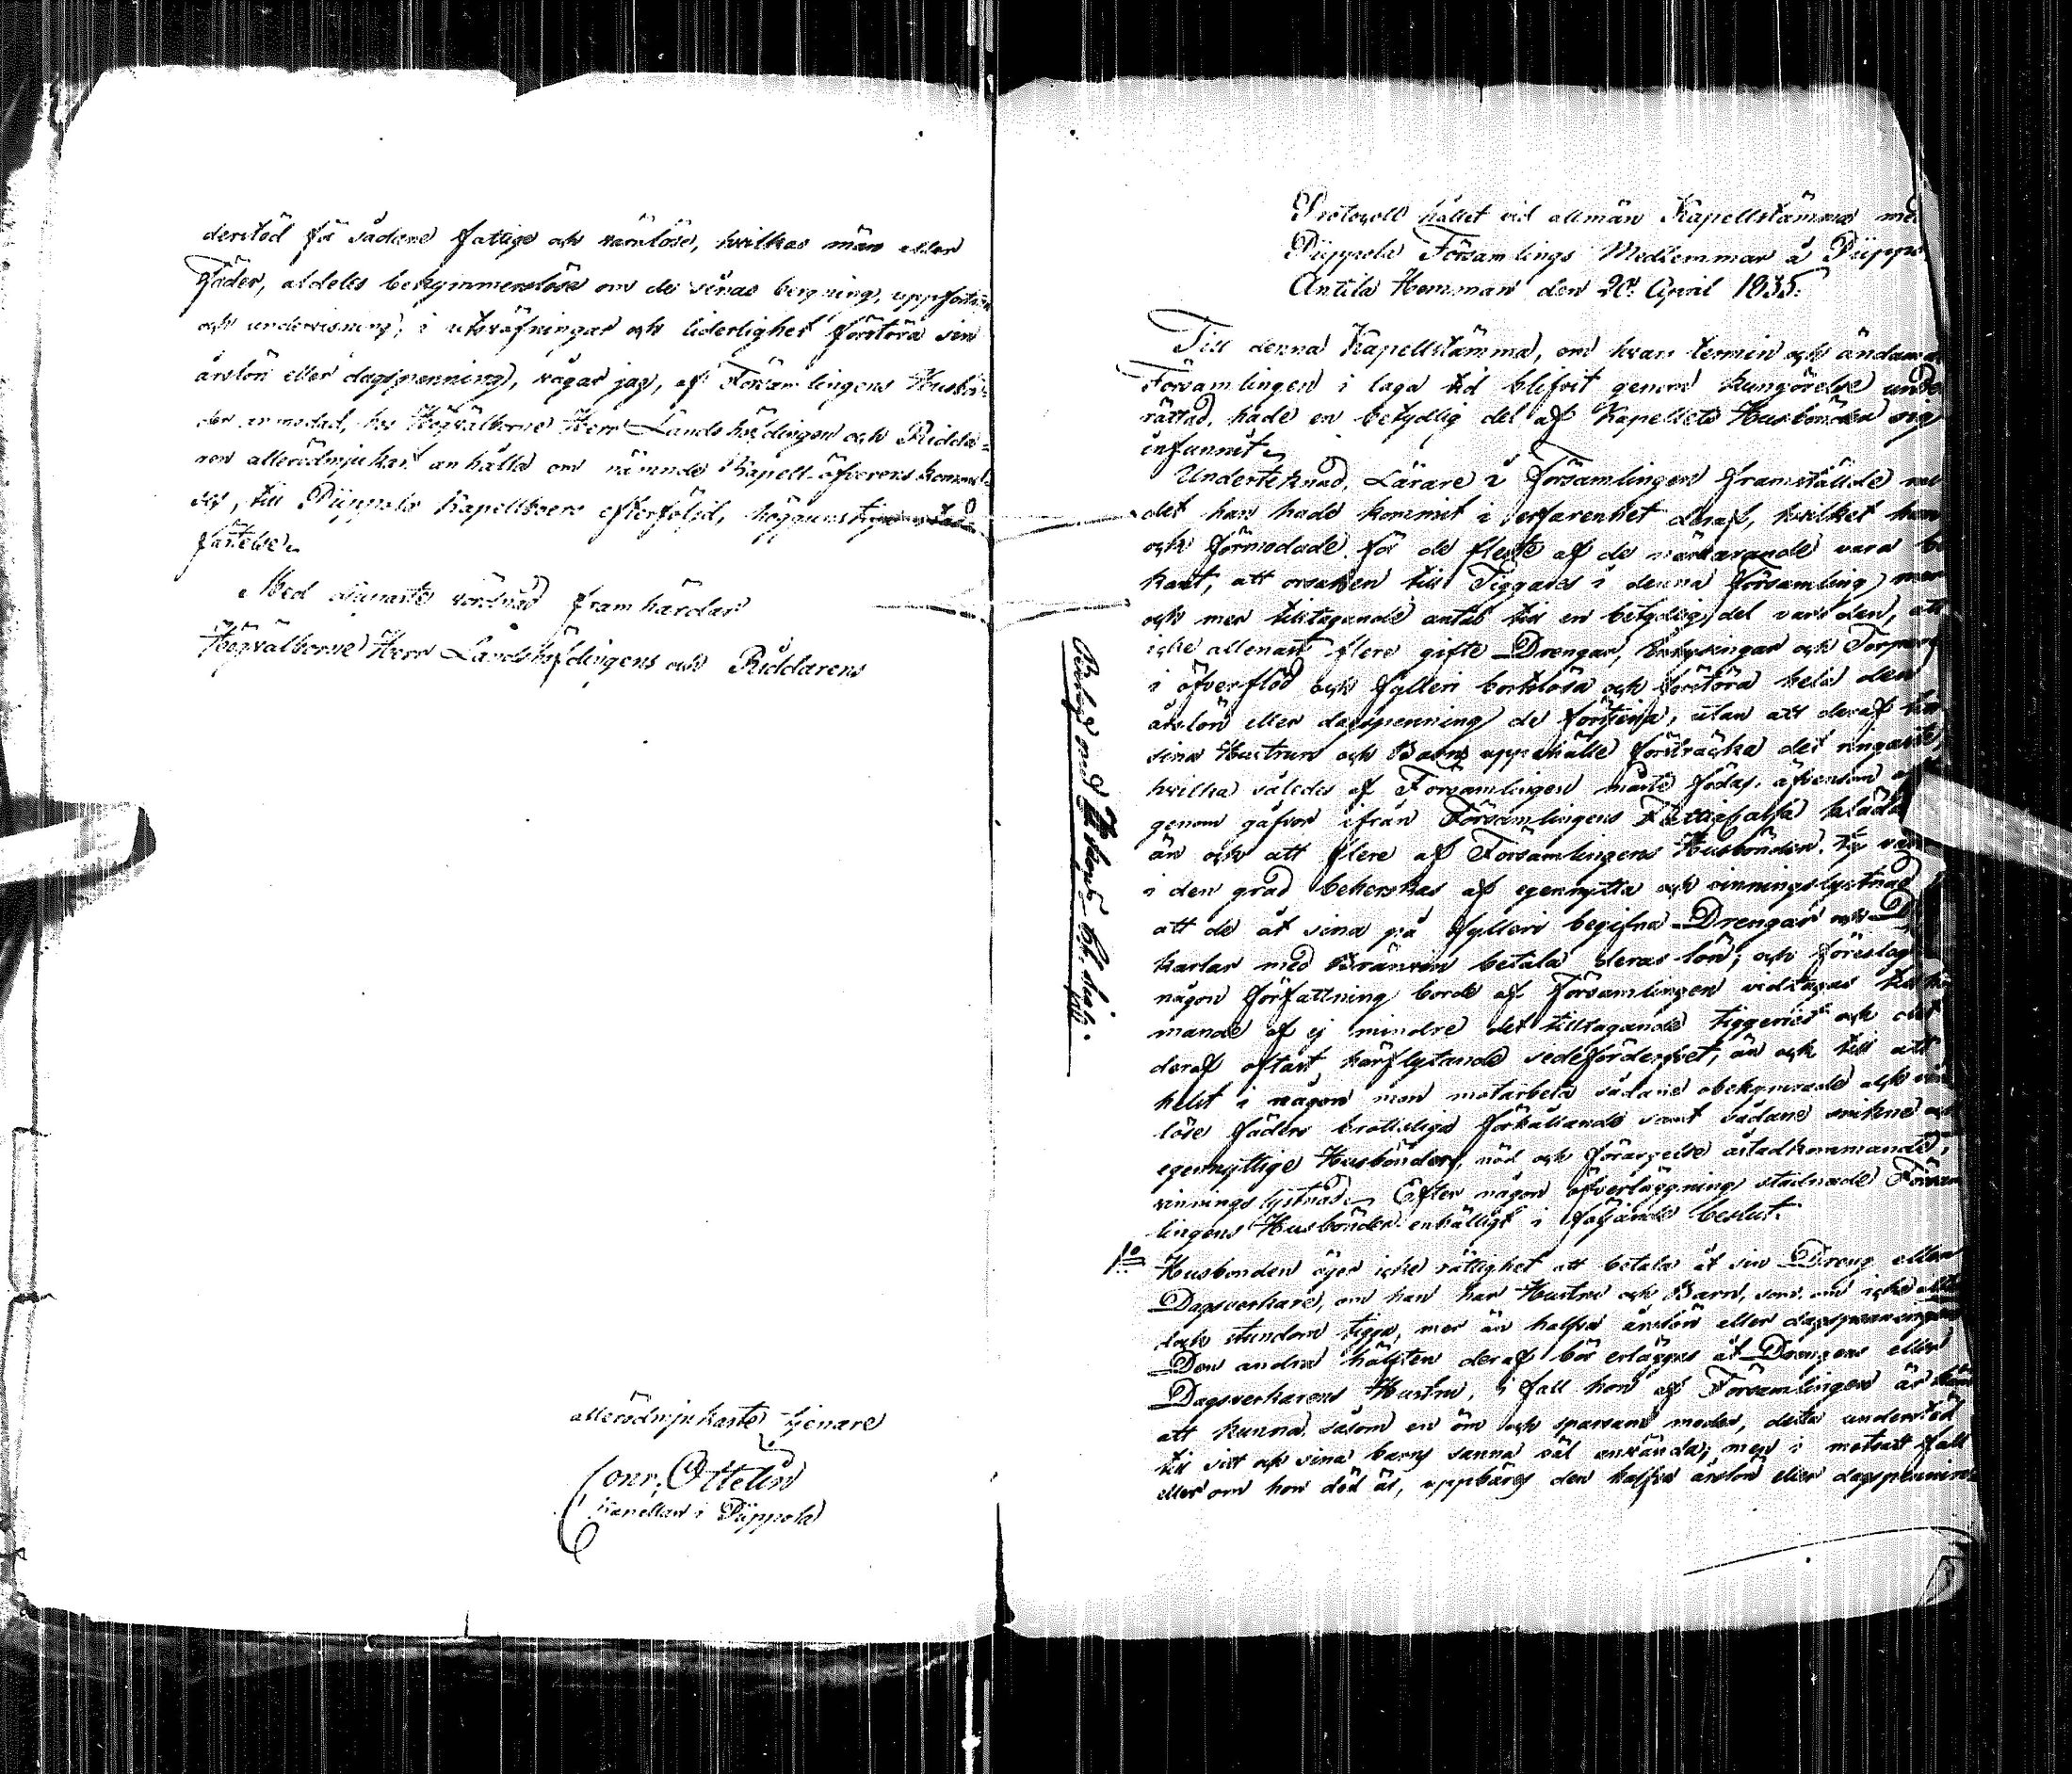 derstöd för sådane fattige och värnlöse, hvilkas män eller
Fäder, aldeles bekymmerslöse om de sinas bergning, uppfostran
och undervisning, i utsväfningar och liderlighet förstöra sin
årslön eller dagspenning, vågar jag, af Församlingens Husbön=
der anmodad, hos Högvälborne Herr Landshöfdingen och Ridda=
ren allerödmjukast anhålla om nämnde Kapell-öfverenskommel=
ses, till Piippola Kapellboers efterföljd, höggunstiga stad=
fästelse.
Med djupaste vördnad framhärdar
Högvälborne Herr Landshöfdingens och Riddarens
allerödmjukaste tjenare
Conr. Ottelin
Kapellan i Piippola
Protocoll hållet vid allmän Kapellstämma med
Piippola Församlings Medlemmar å Piippola
Antila Hemman den 20de April 1835.
Till denna Kapellstämma, om hvars termin och ändamål
Församlingen i laga tid blifvit genom kungörelse under
rättad, hade en betydlig del af Kapellets Husbönder sig
infunnit.
Undertecknad, Lärare i Församlingen framställde
det han hade kommit i erfarenhet deraf, hvilket han
och förmodade för de fleste af de närvarande vara be
kant, att orsaken till Tiggares i denna Församling mer
och mer tilltagande antal till en betydlig del vore den, att
icke allenast flere gifte Drengar, Inhysingar och Torpare
i öfverflöd och fylleri bortslösa och förstöra hela den
årslön eller dagspenning de förtjena, utan att deraf till
sina Hustrurs och Barns uppehälle försträcka det ringaste,
hvilka således af Församlingen måste födas, äfvensom
genom gåfvor ifrån Församlingens Fattigkassa klädas
än ock att flere af Församlingens Husbönder
i den grad beherskas af egennytta och vinningslystnad
att de åt sina på fylleri begifna Drengar och
karlar med Bränvin betala deras lön; och föreslog
någon författning borde af Församlingen vidtagas
mande af ej mindre det tilltagande tiggeriet och det
deraf oftast härflytande sedeförderfvet, än ock till att
helst i någon mon motarbeta sådane obekymrade och
löse fäders brottsliga förhållande samt sådane snikne och
egennyttige Husbönders, nöd och förargelse åstadkommande,
vinningslystnad. Efter någon öfverläggning stadnade Församl
lingens Husbönder enhälligt i följande beslut:
1o Husbonden äger icke rättighet att betala åt sin Dreng eller
Dagsverkare, om han har Hustru och Barn, som, om icke alltid
dock stundom tigga, mer än halfva årslön eller dagspenningen
Den andra hälften deraf bör erläggas åt Drengens eller
Dagsverkarens Hustru, i fall hon af Församlingen är känd
att kunna, såsom en öm och sparsam moder, detta understöd
till sitt och sina barns sanna väl använda; men i motsatt fall
eller om hon död är, uppbäres den halfva årslön eller dagspenning